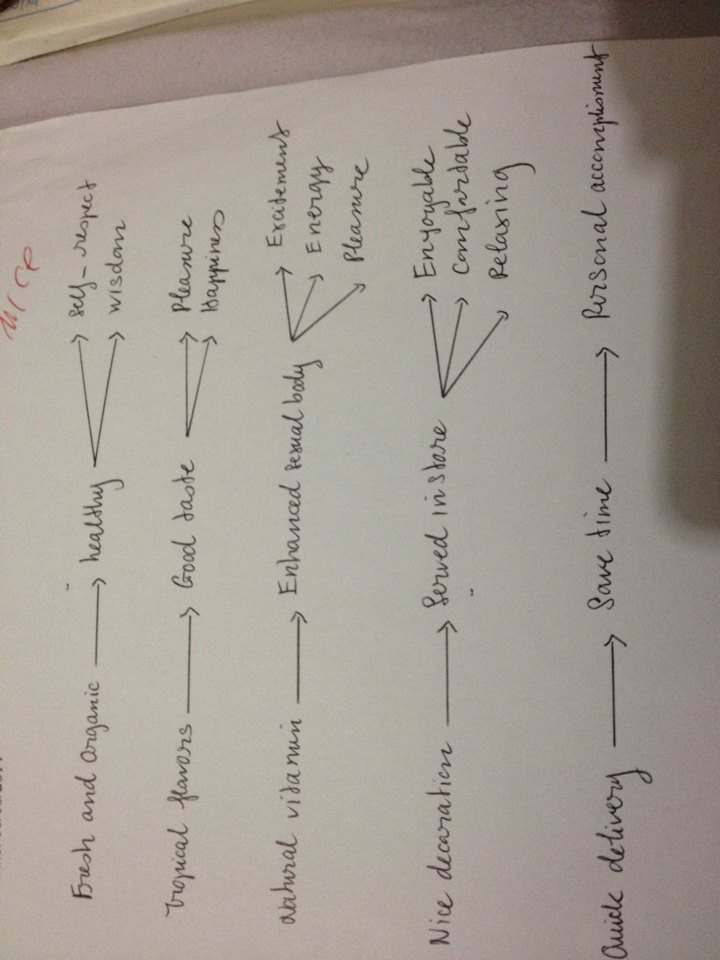 Fresh and organic → healthy → self-respect
wisdom
Tropical flavors → Good taste → Pleasure
Happiness
Natural vitamin → Enhanced sexual body → Exatement
Energy
Pleasure
Nice decoration → Served in store → Enyoyable
Comfortable
Relaxing
Quick delivery → Save time → Personal accomplisment